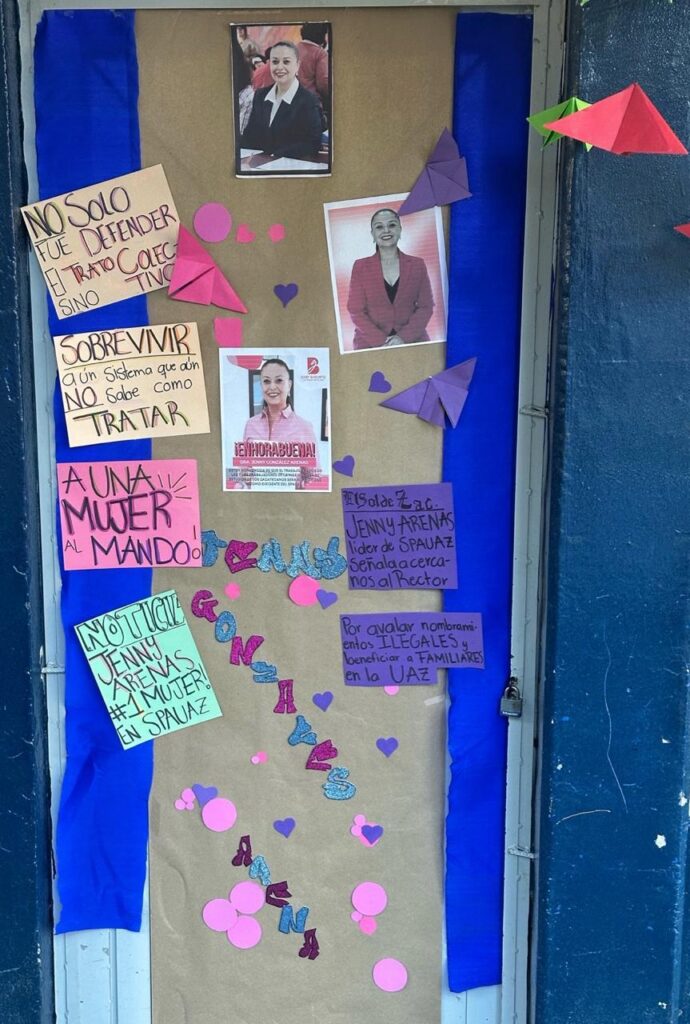 NO SOLO
FUE DEFENDER
El TRATO COLEC-
TIVO
SINO
SOBREVIVIR
a ún sistema que aún
NO Sabe como
TRATAR
A UNA
MUJER
AL MANDO!
¡ENHORABUENA!
DRA. JENNY GONZÁLEZ ARENAS
El Sol de Zac.
JENNY ARENAS
líder de SPAUAZ
Señala a cerca-
nos al Rector
Por avalar nombrami-
entos ILEGALES y
beneficiar a FAMILIARES
en la UAZ
NOTICIA!
JENNY
ARENAS
#1 MUJER!
EN SPAUAZ
JENNY
GONZALES